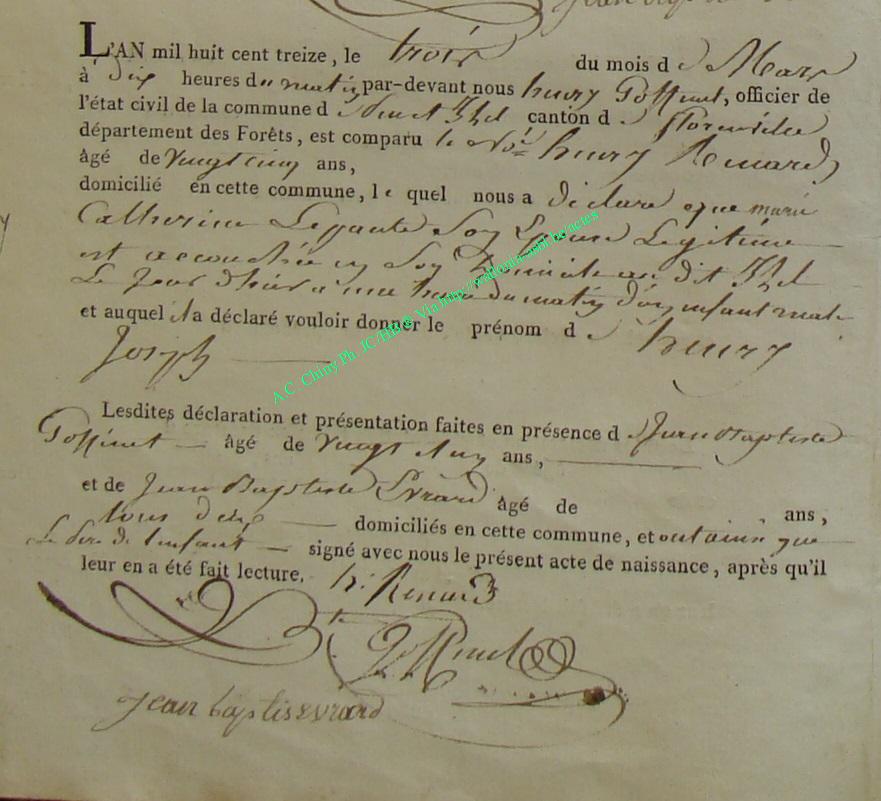 L'AN mil huit cent treize, le trois du mois d e Mars
à dix heures du matin par-devant nous henry Goffinet, officier de
l'état civil de la commune d canton d e florenville
département des Forêts, est comparu le henry Renard
âgé de vingt cinq ans,
domicilié en cette commune, le quel nous a declaré que marie
Catherine Son Epouse Legitime
est accouchée en Son Domicile au dit
Le Jour d'hier a une heure du matin d'un enfant male
et auquel il a déclaré vouloir donner le prénom d e henry
Joseph
Lesdites déclaration et présentation faites en présence d e Jean Baptiste
Goffinet âgé de vingt ans,
et de Jean Baptiste Evrard âgé de ans,
tous deux domiciliés en cette commune, et ont ainsi que
Le Pere de l'enfant signé avec nous le présent acte de naissance, après qu'il
leur en a été fait lecture. h. Renard
Goffinet
jean baptis evrard
A C Chiny Ph. JC/HB & Via http://wallonia-asbl.be/actes